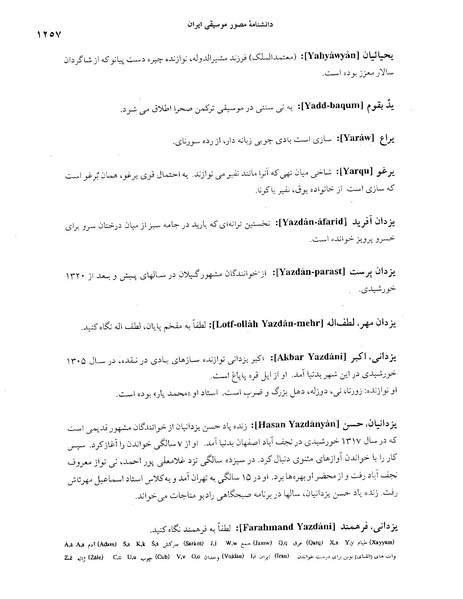 دانشنامهٔ مصور موسیقی ایران
۱۲۵۷
یحیائیان [Yahyâwyân]: (معتمدالملک) فرزند مشیرالدوله، نوازنده چیره دست پیانو که از شاگردان
سالار معزز بوده است.
یدّ بقوم [Yadd-baqum]: به نی سنتی در موسیقی ترکمن صحرا اطلاق می شود.
یراع [Yarâw]: سازی است بادی چوبی زبانه دار، از رده سورنای.
یرغو [Yarqu]: شاخی میان تهی که آنرا مانند نفیر می نوازند. به احتمال قوی یرغو، همان بُرغو است
که سازی است از خانواده بوق، نفیر یا کرنا.
یزدان آفرید [Yazdân-âfarid]: نخستین ترانه‌ای که باربد در جامه سبز از میان درختان سرو برای
خسرو پرویز خوانده است.
یزدان پرست [Yazdân-parast]: از خوانندگان مشهور گیلان در سالهای پیش و بعد از ۱۳۲۰
خورشیدی.
یزدان مهر، لطف‌اله [Lotf-ollâh Yazdân-mehr]: لطفاً به مفخم پایان، لطف اله نگاه کنید.
یزدانی، اکبر [Akbar Yazdâni]: اکبر یزدانی نوازنده سازهای بادی در نقده، در سال ۱۳۰۵
خورشیدی در این شهر بدنیا آمد. او از ایلی قره پاپاغ است.
او نوازنده: زورنا، نی، دوزله، دهل بزرگ و ضرب است. استاد او «محمد یار» بوده است.
یزدانیان، حسن [Hasan Yazdânyân]: زنده یاد حسن یزدانیان از خوانندگان مشهور قدیمی است
که در سال ۱۳۱۷ خورشیدی در نجف آباد اصفهان بدنیا آمد. او از ۷ سالگی خواندن را آغاز کرد. سپس
کار را با خواندن آوازهای مثنوی دنبال کرد. در سیزده سالگی نزد غلامعلی پور احمد، نی نواز معروف
نجف آباد رفت و از محضر او بهره‌ها برد. او در ۱۵ سالگی به تهران آمد و به کلاس استاد اسماعیل مهرتاش
رفت. زنده یاد حسن یزدانیان، سالها در برنامه صبحگاهی رادیو مناجات می‌خواند.
یزدانی، فرهمند [Farahmand Yazdâni]: لطفاً به فرهمند نگاه کنید.